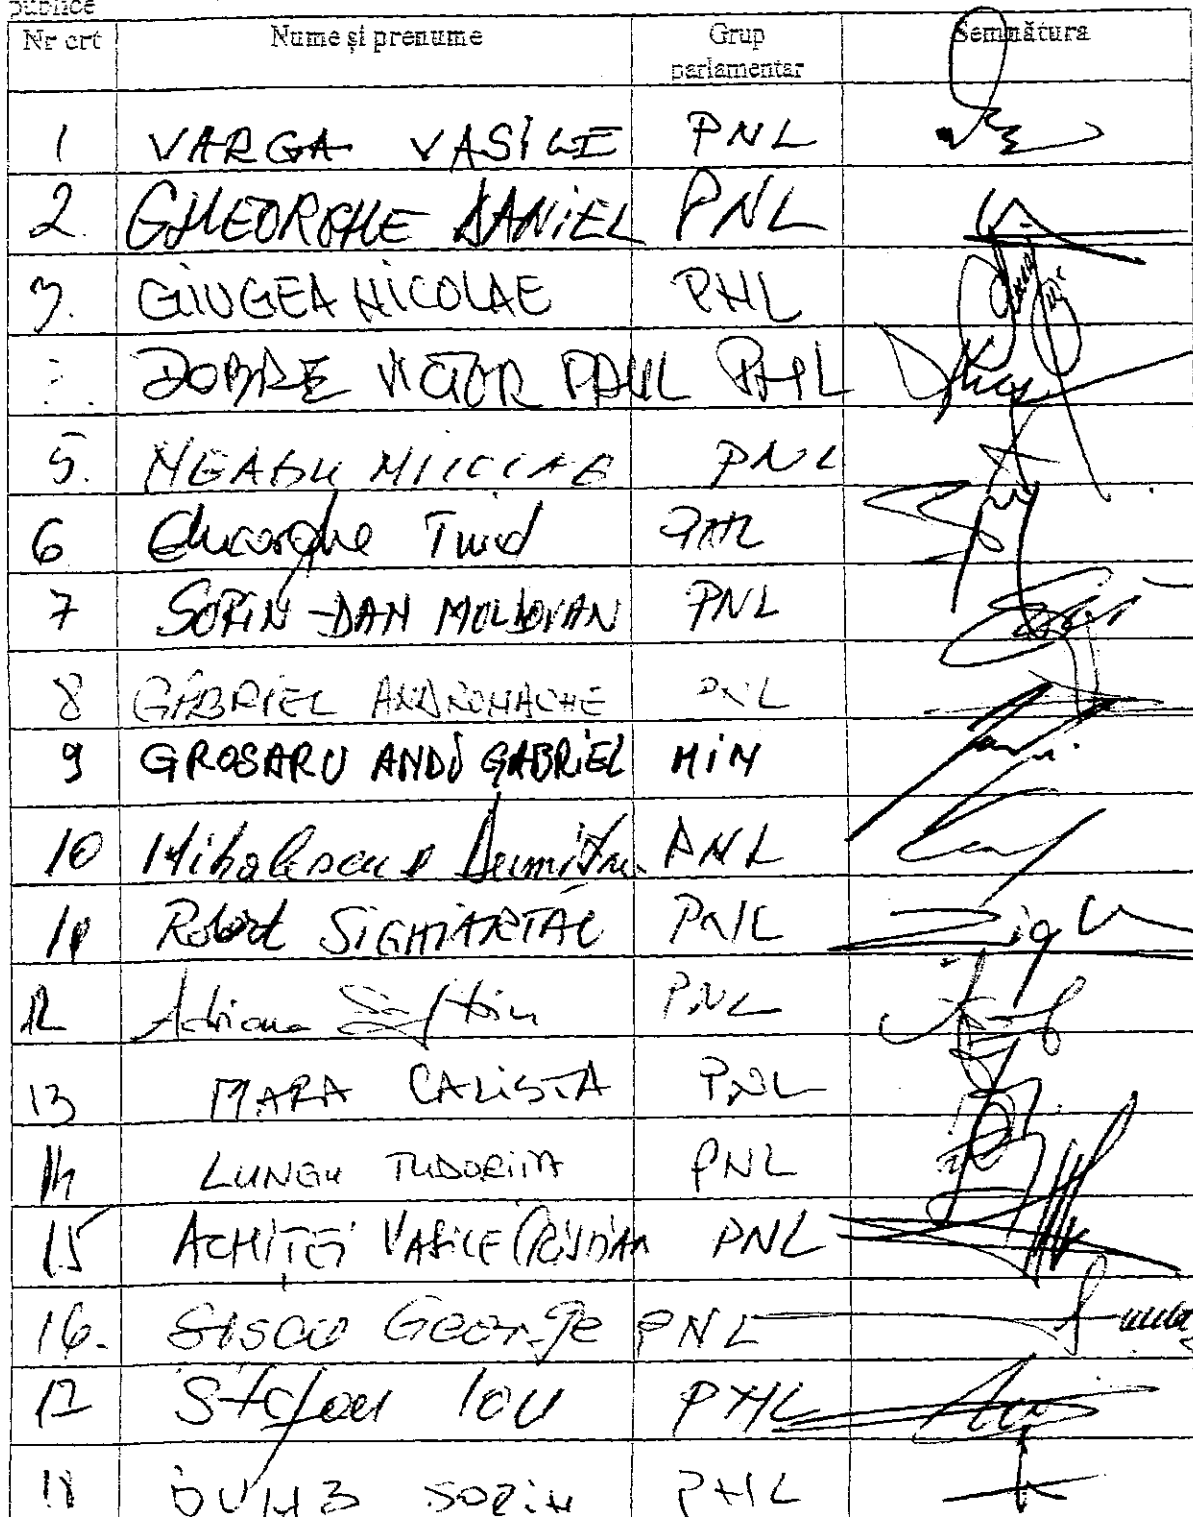 publice
Nr crt Nume și prenume Grup parlamentar Semnătura
1 VARGA VASILE PNL
2. GHEORGHE DANIEL PNL
3. GIUGEA NICOLAE PNL
DOBRE VICTOR PAUL PNL
5. NEAGU NICOLAE PNL
6 Gheorghe Tinel PNL
7 SORIN-DAN MOLDOVAN PNL
8 GABRIEL ANDRONACHE PNL
9 GROSARU ANDI GABRIEL MIN
10 Mihalescul Dumitru PNL
11 Robert SIGHIARTĂU PNL
12 Adriana Săftoiu PNL
13 MARA CALISTA PNL
14 LUNGU TUDORIȚA PNL
15 ACHIȚEI VASILE CRISTIAN PNL
16. SISCU George PNL
17 Stefan Ion PNL
18 BUMB SORIN PNL